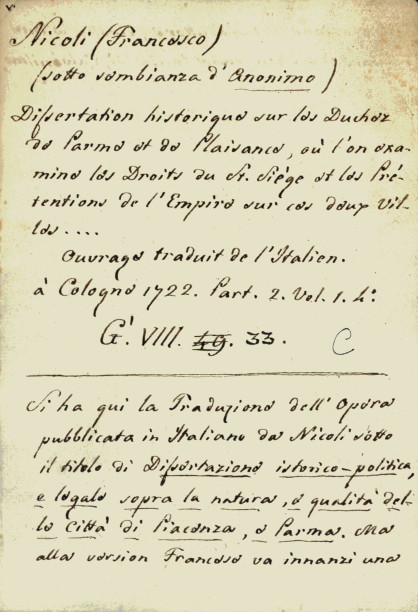 Nicoli (Francesco)
(sotto sembianza d'Anonimo)
Dissertation historique sur les Duchez
de Parme et de Plaisance, où l'on exa-
mine les Droits du St. Siége et les Pré-
tentions de l'Empire sur ces deux Vil-
les....
Ouvrage traduit de l'Italien.
à Cologne 1722. Part. 2. Vol. 1. 4º.
G! VIII. 49. 33. C
Si ha qui la Traduzione dell'Opera
pubblicata in Italiano da Nicoli sotto
il titolo di Dissertazione istorico-politica,
e legale sopra la natura, e qualità del-
le Città di Piacenza, e Parma. Ma
alla version Francese va innanzi una